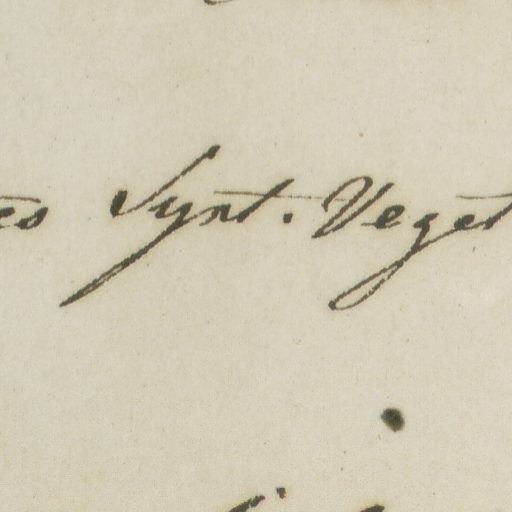 es Syst. Veget